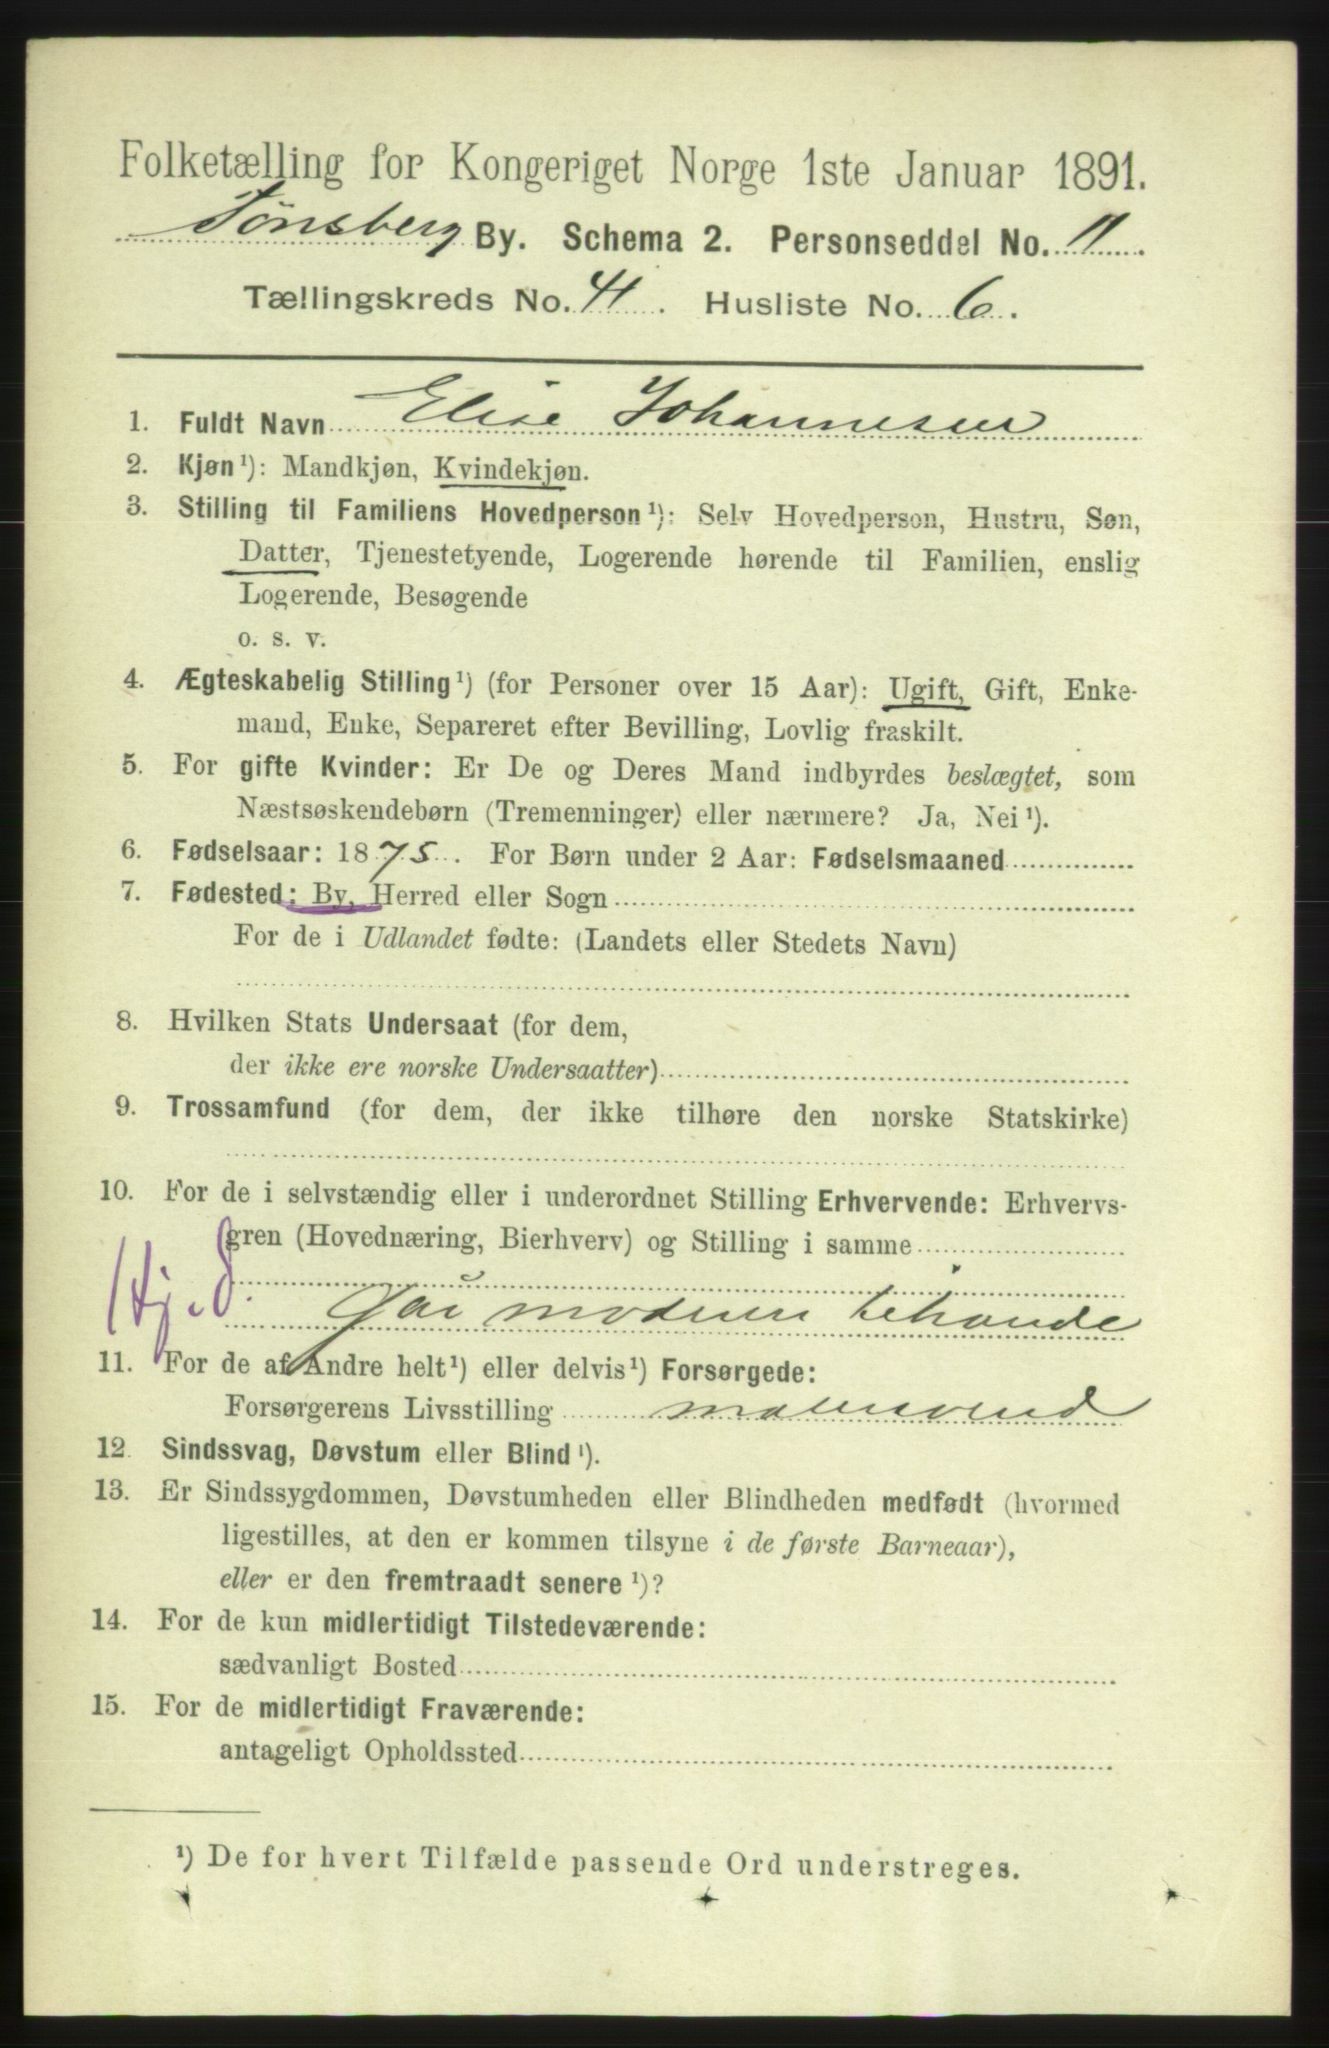 Folketælling for Kongeriget Norge 1ste Januar 1891.
Tønsberg By. Schema 2. Personseddel No. 11.
Tællingskreds No. 4. Husliste No. 6.
1. Fuldt Navn Elise Johannesen
2. Kjøn¹): Mandkjøn, Kvindekjøn.
3. Stilling til Familiens Hovedperson¹): Selv Hovedperson, Hustru, Søn,
Datter, Tjenestetyende, Logerende hørende til Familien, enslig
Logerende, Besøgende
o. s. v.
4. Ægteskabelig Stilling¹) (for Personer over 15 Aar): Ugift, Gift, Enke-
mand, Enke, Separeret efter Bevilling, Lovlig fraskilt.
5. For gifte Kvinder: Er De og Deres Mand indbyrdes beslægtet, som
Næstsøskendebørn (Tremenninger) eller nærmere? Ja, Nei¹).
6. Fødselsaar: 1875. For Børn under 2 Aar: Fødselsmaaned
7. Fødested: By, Herred eller Sogn
For de i Udlandet fødte: (Landets eller Stedets Navn)
8. Hvilken Stats Undersaat (for dem,
der ikke ere norske Undersaatter)
9. Trossamfund (for dem, der ikke tilhøre den norske Statskirke)
10. For de i selvstændig eller i underordnet Stilling Erhvervende: Erhvervs-
gren (Hovednæring, Bierhverv) og Stilling i samme
Hj. d. Gaar moderen tehaande
11. For de af Andre helt¹) eller delvis¹) Forsørgede:
Forsørgerens Livsstilling malersvend
12. Sindssvag, Døvstum eller Blind¹).
13. Er Sindssygdommen, Døvstumheden eller Blindheden medfødt (hvormed
ligestilles, at den er kommen tilsyne i de første Barneaar),
eller er den fremtraadt senere¹)?
14. For de kun midlertidigt Tilstedeværende:
sædvanligt Bosted
15. For de midlertidigt Fraværende:
antageligt Opholdssted
¹) De for hvert Tilfælde passende Ord understreges.